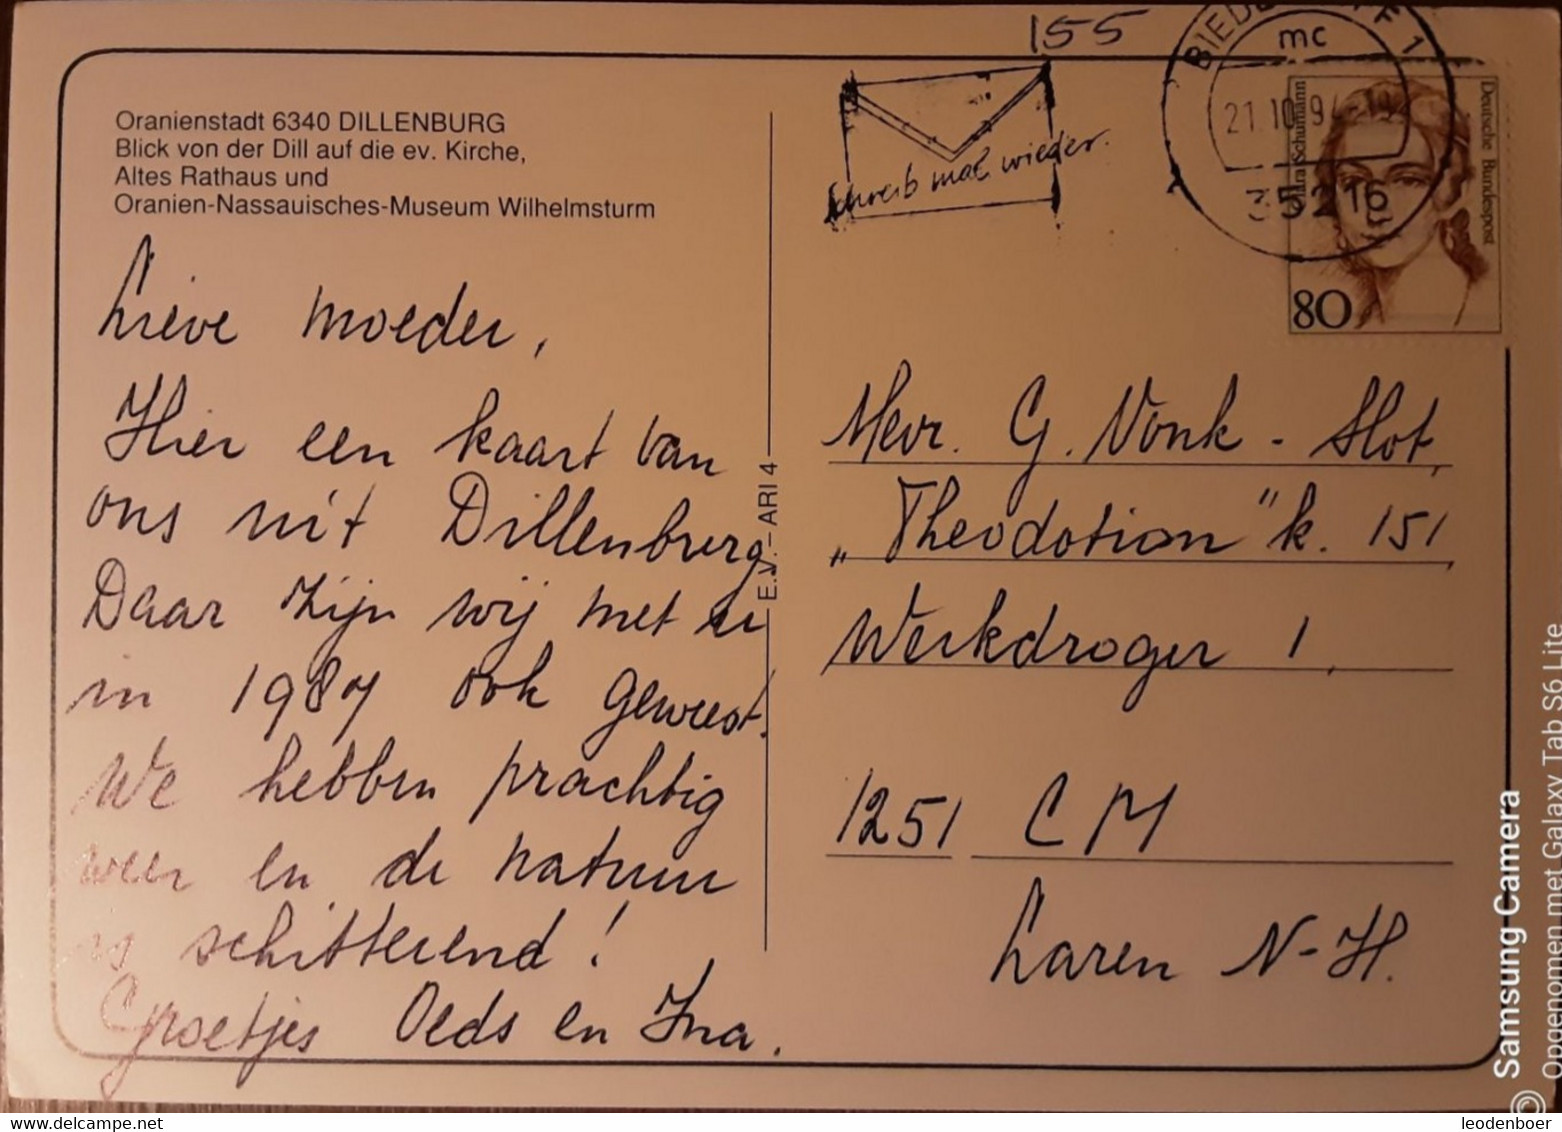 155
Oranienstadt 6340 DILLENBURG
Blick von der Dill auf die ev. Kirche,
Altes Rathaus und
Oranien-Nassauisches-Museum Wilhelmsturm
Lieve moeder,
Hier een kaart van
ons uit Dillenburg
Daar zijn wij met u
in 1987 ook geweest.
We hebben prachtig
weer en de natuur
is schitterend!
Groetjes Oeds en Ina.
E.V. - ARI 4
Schreib mal wieder.
mc
21.10.94-19
35216
Schumann
Deutsche Bundespost
80
Mevr. G. Vonk - Slot,
„Theodotion" k. 151
Werkdroger 1,
1251 CM
Laren N-H.
Samsung Camera
Opgenomen met Galaxy Tab S6 Lite
delcampe.net
leodenboer